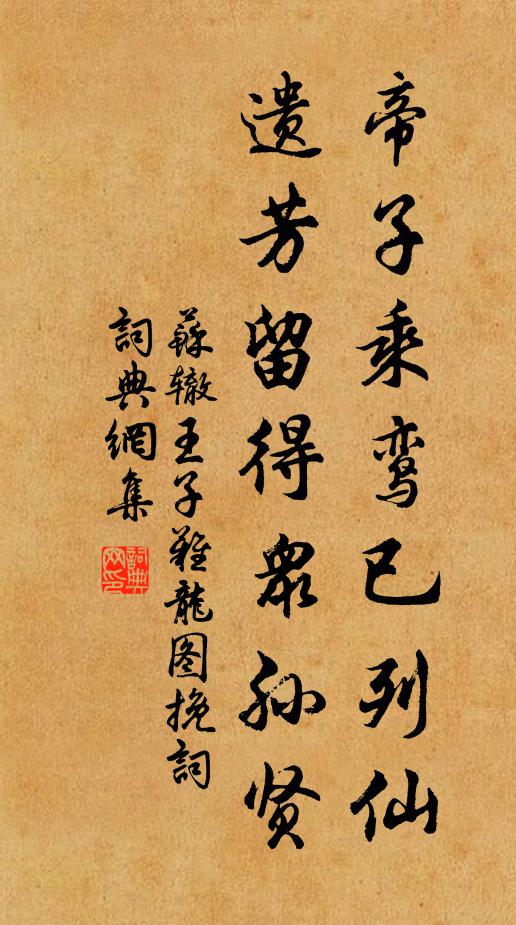 帝子乘鸾已列仙
遗芳留得衆孙贤
蘇辙王子難龍图挽詞
詞典網集
詞典
网印